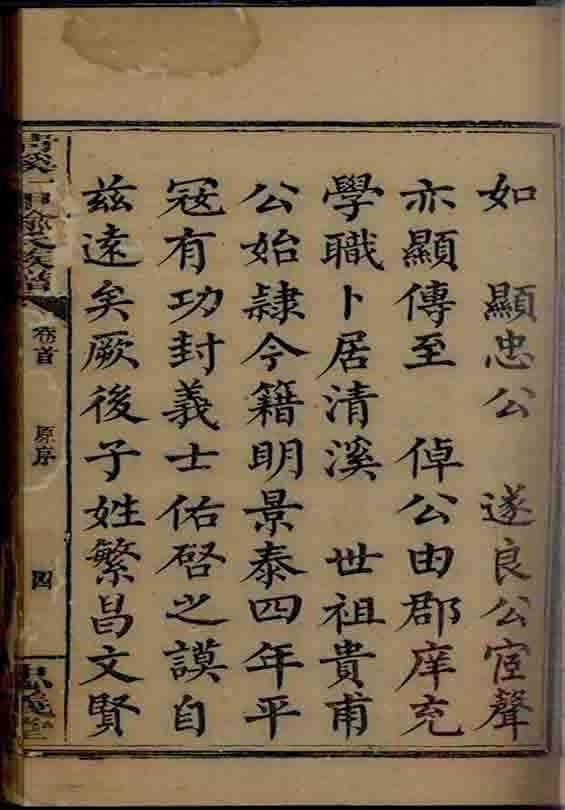 如 顯忠公 遂良公宦聲
亦顯傳至 倬公由郡庠充
學職卜居清溪 世祖貴甫
公始隷今籍明景泰四年平
冦有功封義士佑啓之謨自
茲遠矣厥後子姓繁昌文賢
氏族譜
卷首
原序
四
堂